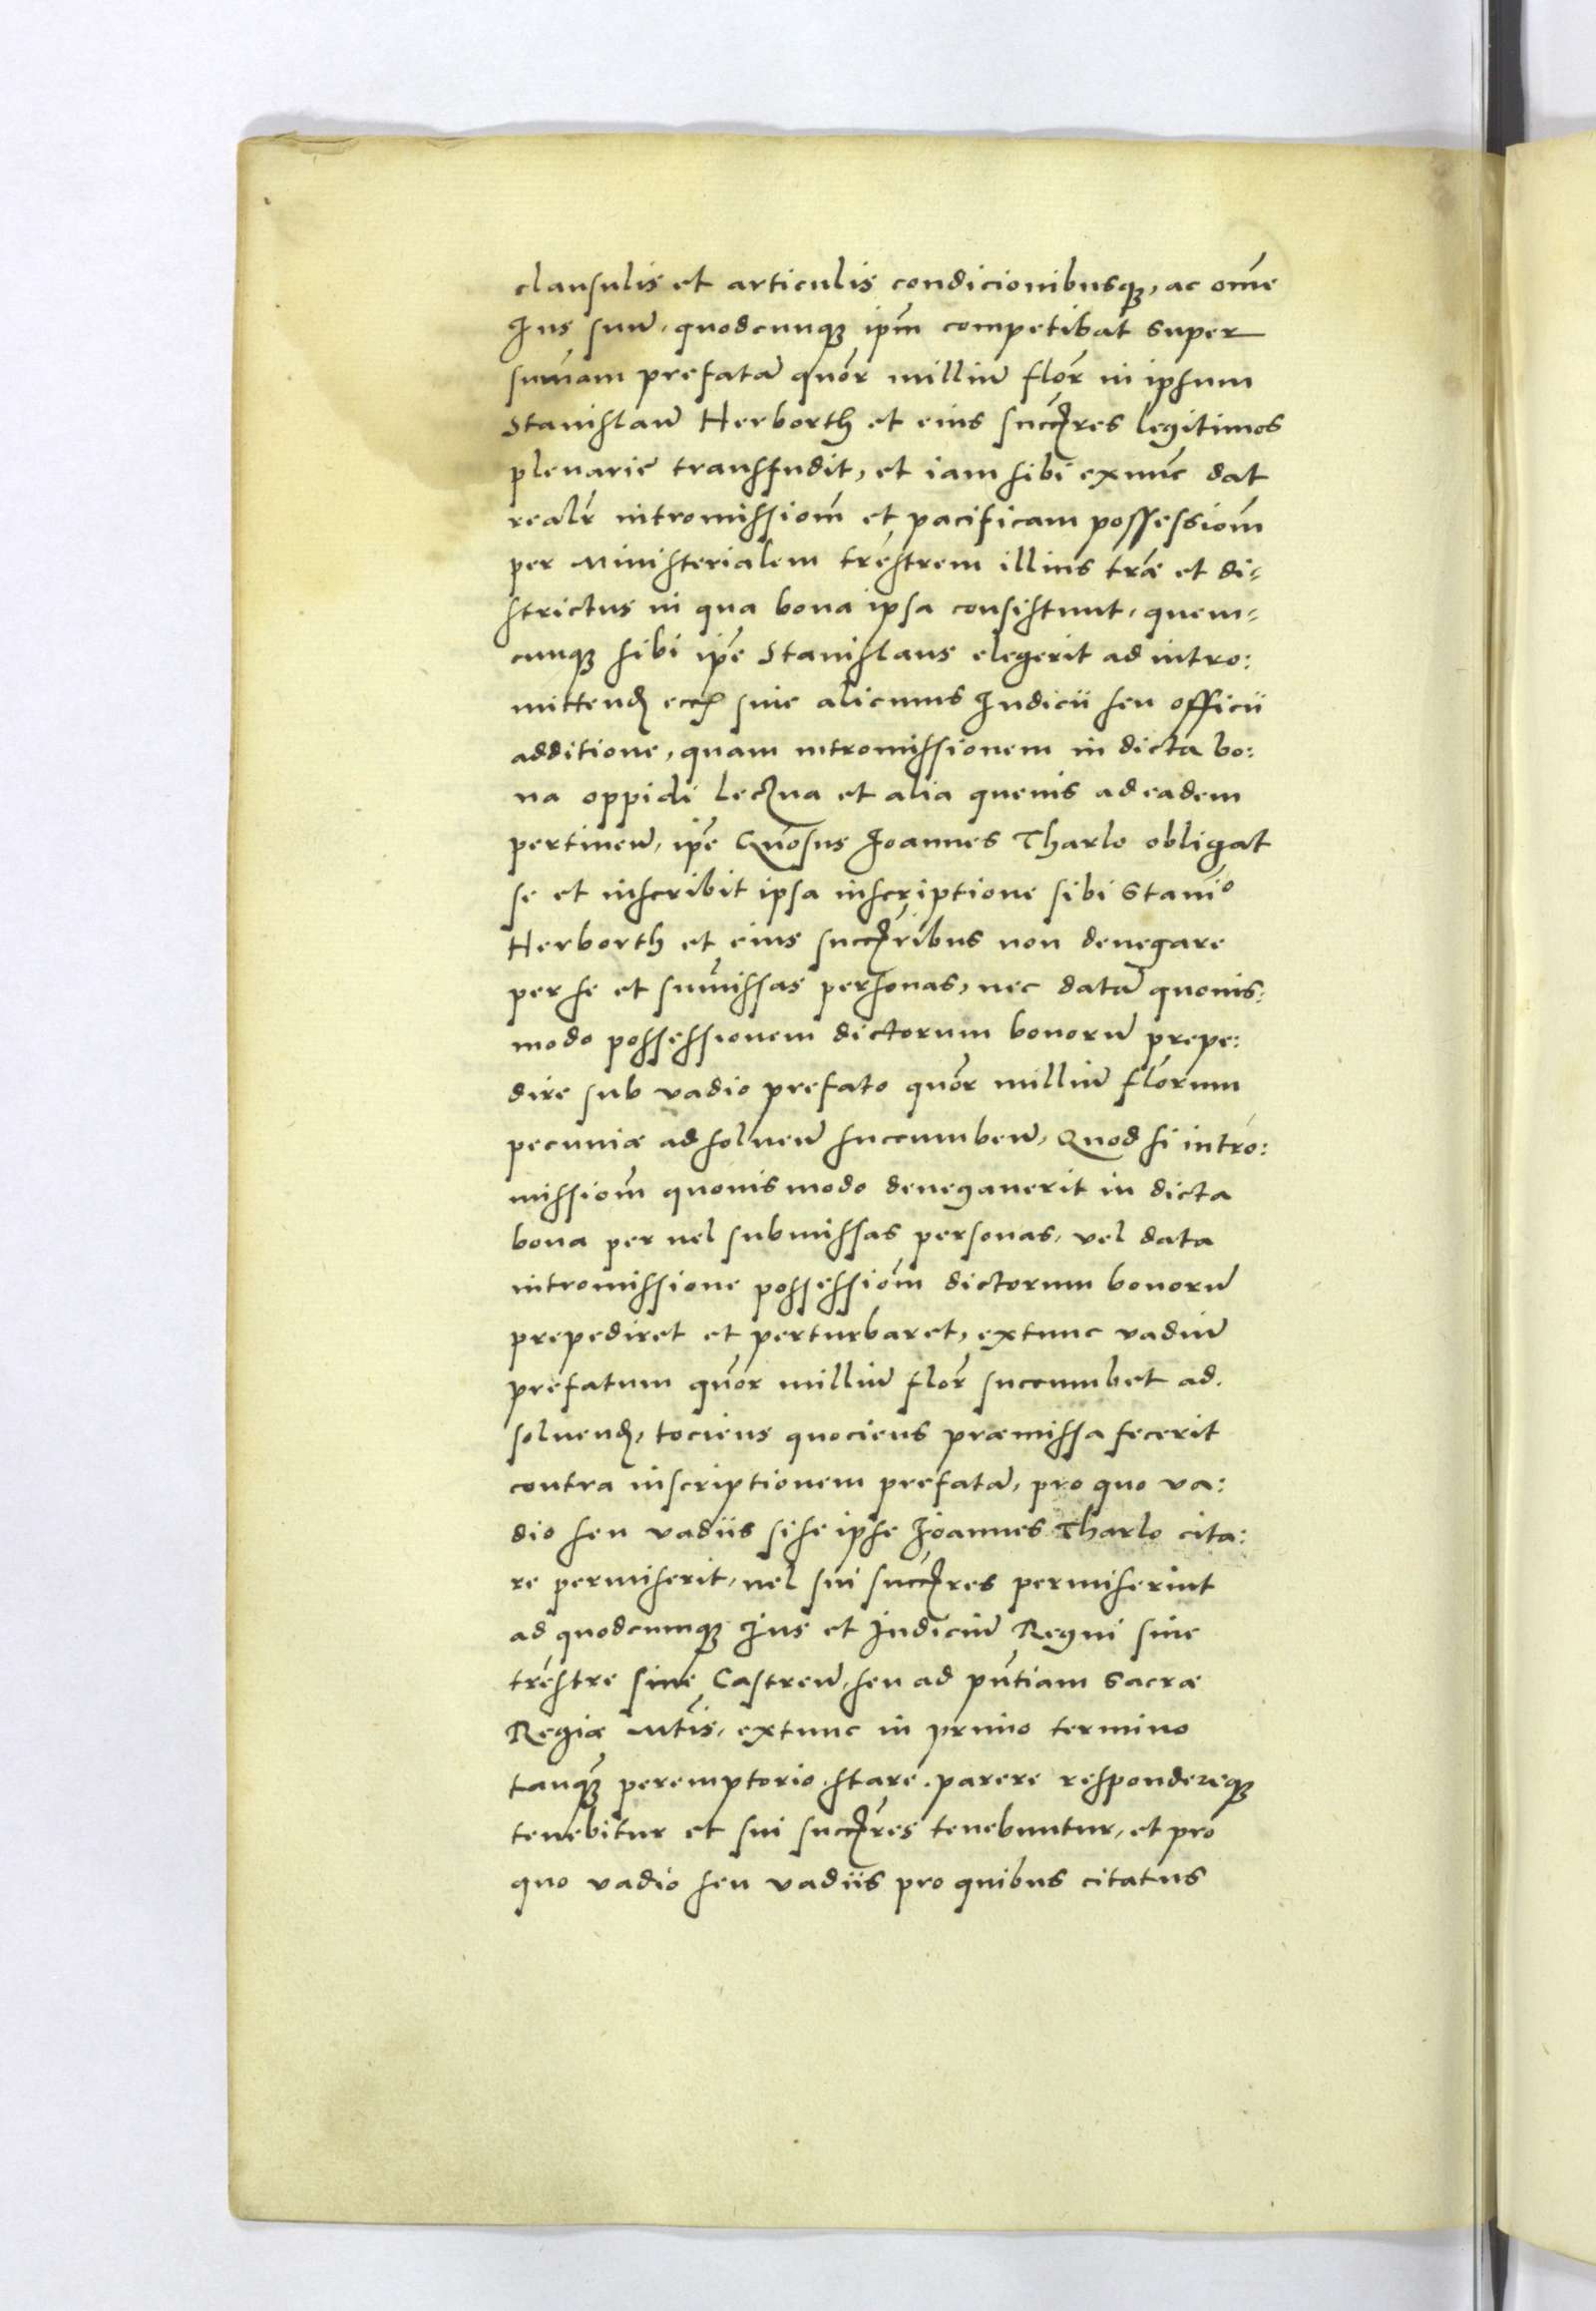 clausulis et articulis condicionibusq₃, ac om̄e
Ius suū, quodcunq₃ ip̄m competibat super
sum̄am prefatā quōr milliū flor̄ in ipsum
Stanislaū Herborth et eius succ̄res legitimos
plenarie transfudit, et iam sibi exnūc dat
realr̄ intromissiom̄ et pacificam possessiom̄
per Ministerialem tr̄estrem illius tr̄æ et di-
strictus in qua bona ipsa consistunt, quem-
cunq₃ sibi ip̄e Stanislaus elegerit ad intro:
mittend̄ sine alicuius Iudicii seu officii
additione, quam intromissionem in dicta bo:
na oppidi Leczna et alia quevis ad eadem
pertineñ, ip̄e Gn̄osus Ioannes Tharlo obligat
se et inscribit ipsa inscriptione sibi Stani⁰
Herborth et eius succ̄ribus non denegare
per se et sum̄issas personas, nec datā quovis:
modo possessionem dictorum bonorū prepe:
dire sub vadio prefato quōr milliū flōrum
pecuniæ ad solueñ succumbeñ, Quod si intro:
missiom̄ quovis modo denegauerit in dicta
bona per uel submissas personas, vel data
intromissione possessiom̄ dictorum bonorū
prepediret et perturbaret, extunc vadiū
prefatum quōr milliū flor̄ succumbet ad.
soluend̄, tociens quociens præmissa fecerit
contra inscriptionem prefatā, pro quo va:
dio seu vadiis si se ipse Ioannes Tharlo cita:
re permiserit, uel sui succ̄res permiserint
ad quodcumq₃ Ius et Iudiciū Regni siue
tr̄estre siue Castreñ, seu ad pn̄tiam Sacræ
Regiæ Mtīs, extunc in primo termino
tanq̄₃ peremptorio stare, parere respondereq₃
tenebitur et sui succ̄res tenebuntur, et pro
quo vadio seu vadiis pro quibus citatus